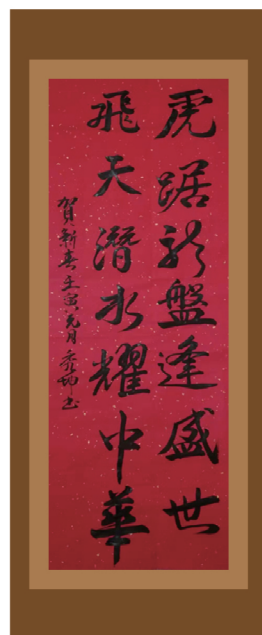 虎踞龍盤逢盛世
飛天潛水耀中華
賀新春壬寅元月秀坤书